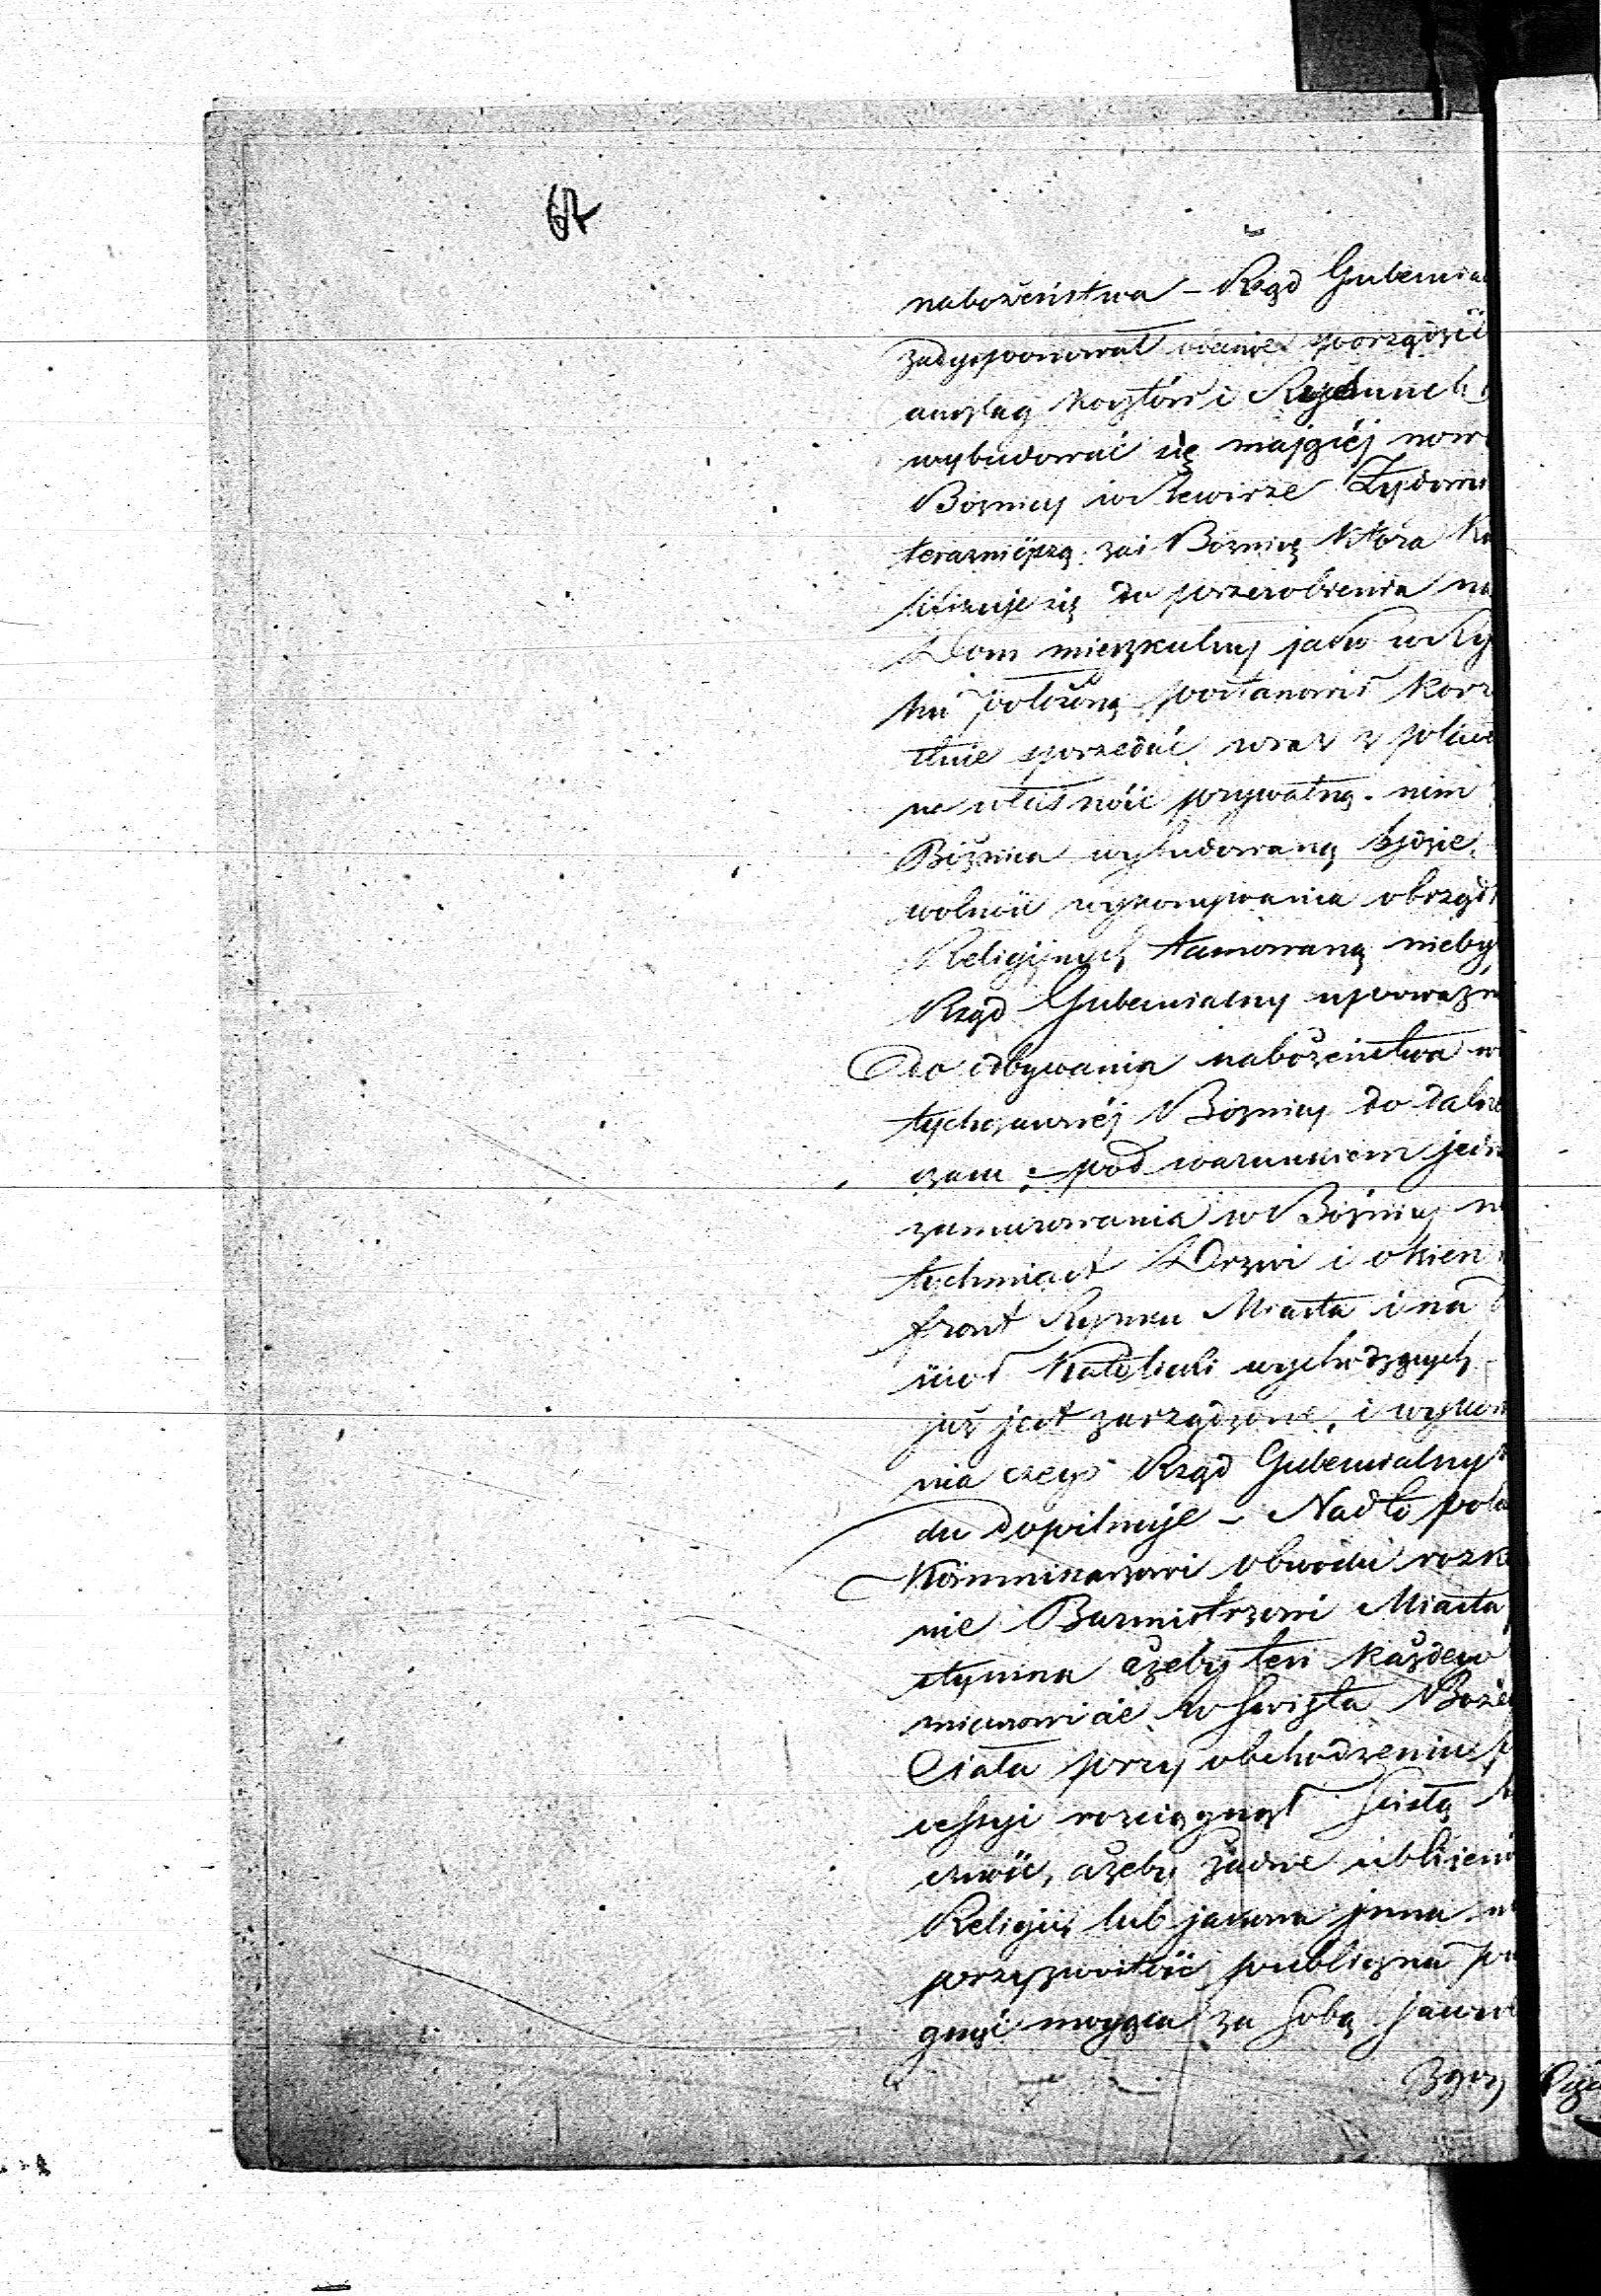 67
nabożeństwa – Rząd Gubernial
zadysponował obecnie sporządzić
anszlag kosztów i Rysunek
wybudować się mającéj now
Bożnicy w Rewirze Żydows
teraznieyszą zaś Bożnicę która kw
lifikuje się do przerobienia na
Dom mieszkalny jako w Ry
ku położoną postanowił korz
stnie sprzedać wraz z placem
na własność prywatną. nim
Bóżnica wybudowaną będzie,
wolność wykonywania obrząd
Religijnych tamowaną nieby
Rząd Gubernialny upoważn
do odbywania nabożeństwa w
tychczasowéj Bożnicy do dalsze
czasu – pod warunkiem jedn
zamurowania w Bóżnicy na
tychmiast Drzwi i okien
front Rynku Miasta i na
ściół Katolicki wychodzących
już jest zarządzone, i wykon
nia czego Rząd Gubernialny
du dopilnuje – Nadto pole
Kommissarzowi obwodu rozk
nie Burmistrzowi Miasta
ażeby ten każdego
micznowicie w Swięta Boże
Ciała przy obchodzeniu p
cessyi rosciągnął scisłą b
czność, ażeby żadne ubliżeni
Religii, lub jakowa inna
przyzwoitość publiczna po
gnąć mogąca za sobą jawn
Zgor